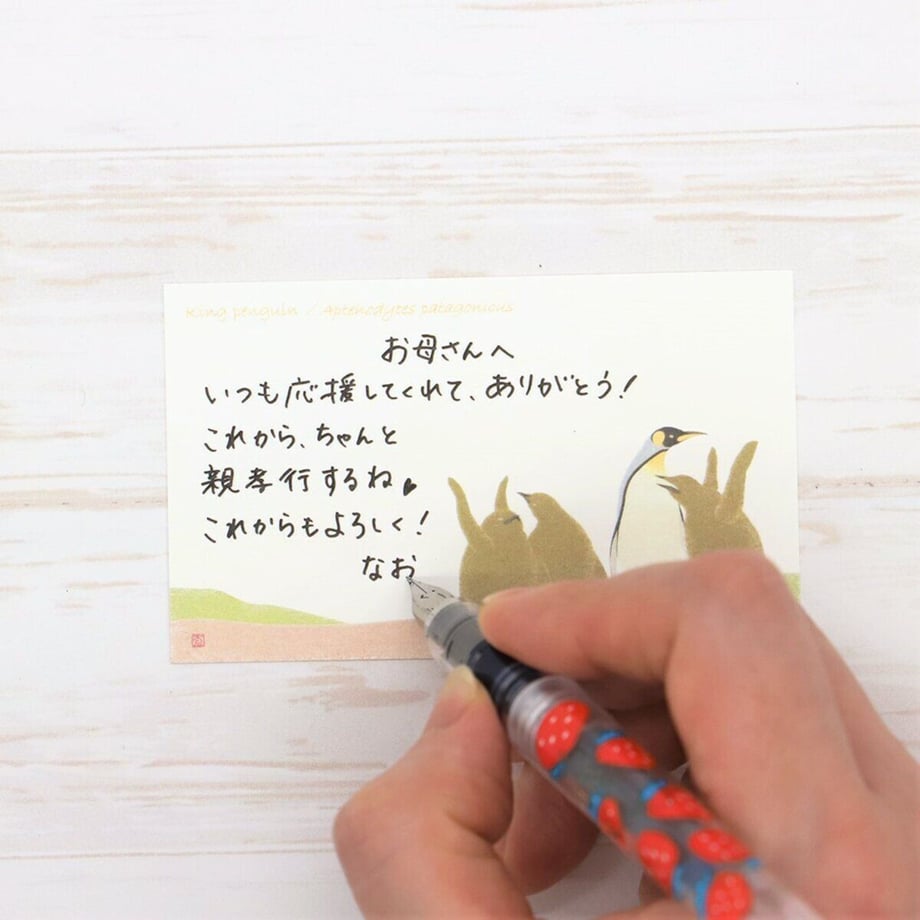 King penguin / Aptenodytes patagonicus
お母さんへ
いつも応援してくれて、ありがとう!
これから、ちゃんと
親孝行するね♥
これからもよろしく!
なお